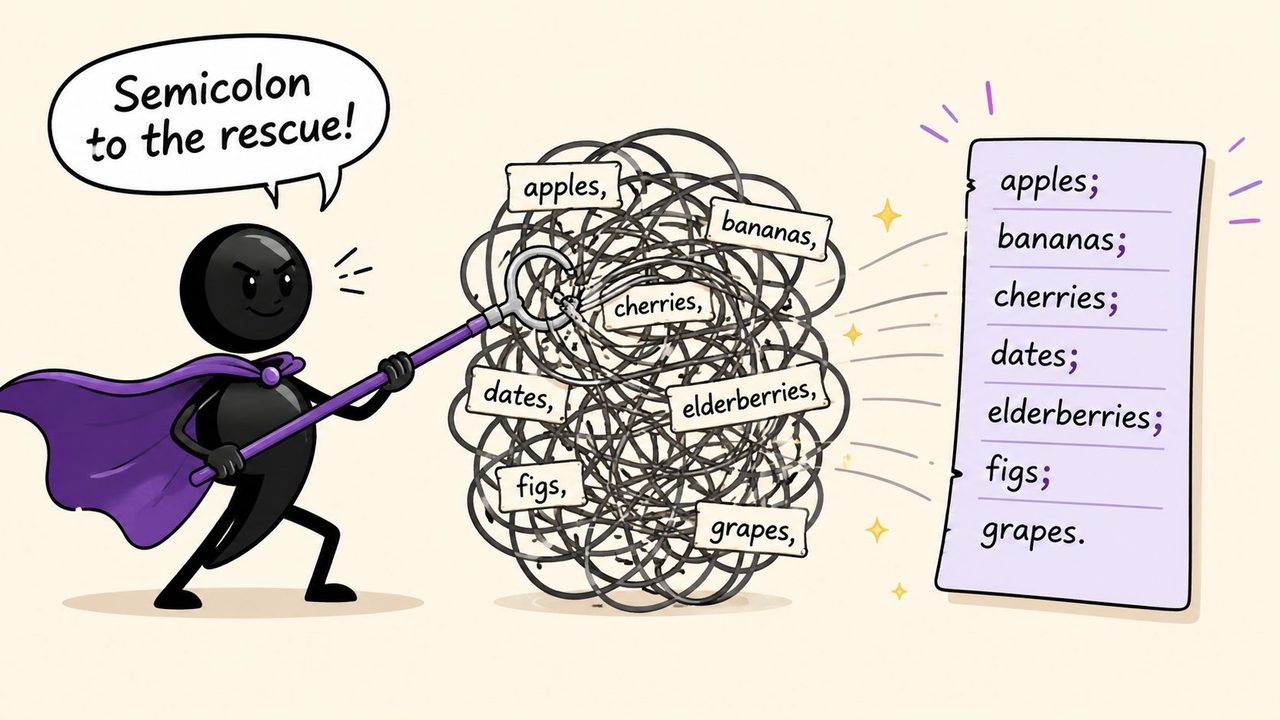 Semicolon
to the rescue!
apples,
bananas,
cherries,
dates,
elderberries,
figs,
grapes,
apples;
bananas;
cherries;
dates;
elderberries;
figs;
grapes.